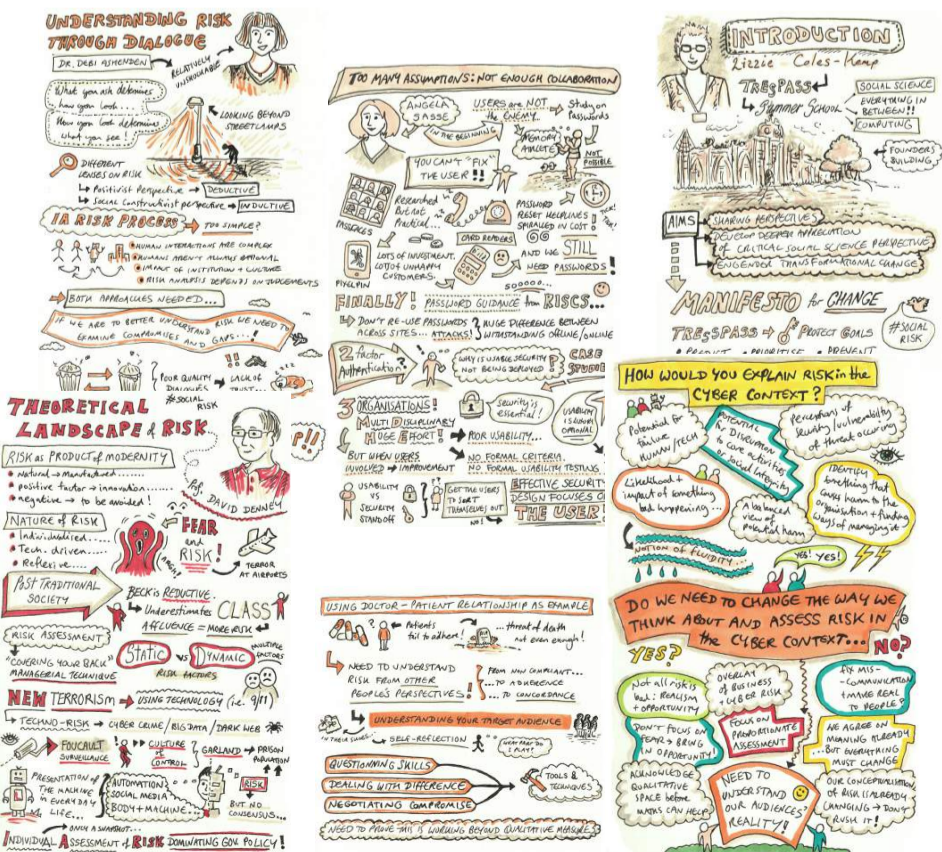 UNDERSTANDING RISK
THROUGH DIALOGUE
DR. DEBI ASHENDEN
RELATIVELY
UNSHOCKABLE
What you ask determines
how you look...
How you look determines
what you see!
LOOKING BEYOND
STREETLAMPS
DIFFERENT
LENSES ON RISK
Positivist Perspective → DEDUCTIVE
Social Constructivist perspective → INDUCTIVE
IA RISK PROCESS → TOO SIMPLE?
HUMAN INTERACTIONS ARE COMPLEX
HUMANS AREN'T ALWAYS RATIONAL
IMPACT OF INSTITUTION + CULTURE
RISK ANALYSIS DEPENDS ON JUDGEMENTS
BOTH APPROACHES NEEDED...
IF WE ARE TO BETTER UNDERSTAND RISK WE NEED TO
EXAMINE COMPROMISES AND GAPS...
POOR QUALITY
DIALOGUES
LACK OF
TRUST...
#SOCIAL
RISK
THEORETICAL
LANDSCAPE of RISK
RISK AS PRODUCT OF MODERNITY
Natural → manufactured......
positive factor → innovation.....
negative → to be avoided!
Prof. DAVID DENNEY
NATURE OF RISK
Individualised...
Tech. driven....
Reflexive.....
ARGH!
FEAR
and
RISK!
TERROR
AT AIRPORTS
POST TRADITIONAL
SOCIETY
BECK is REDUCTIVE.
Underestimates CLASS
AFFLUENCE = MORE RISK
RISK ASSESSMENT
"COVERING YOUR BACK"
MANAGERIAL TECHNIQUE
STATIC VS DYNAMIC
RISK FACTORS
MULTIPLE
FACTORS
NEW TERRORISM → USING TECHNOLOGY (i.e. 9/11)
TECHNO-RISK → CYBER CRIME / BIG DATA / DARK WEB
FOUCAULT
SURVEILLANCE
CULTURE
of
CONTROL
GARLAND → PRISON
POPULATION
PRESENTATION OF
THE MACHINE
in EVERYDAY
LIFE...
AUTOMATION
SOCIAL MEDIA
BODY + MACHINE...
RISK
BUT NO
CONSENSUS...
ONLY A SNAPSHOT...
INDIVIDUAL ASSESSMENT of RISK DOMINATING GOV. POLICY!
TOO MANY ASSUMPTIONS: NOT ENOUGH COLLABORATION
ANGELA
SASSE
USERS are NOT
the ENEMY.
Study on
Passwords
IN THE BEGINNING
MEMORY
ATHLETE
NOT
POSSIBLE
YOU CAN'T "FIX"
THE USER!!
PASSFACES
Researched
But not
Practical...
PASSWORD
RESET HELPLINES
SPIRALLED IN COST!
TICK!
TOCK!
PIXELPIN
LOTS OF INVESTMENT.
LOT OF UNHAPPY
CUSTOMERS.
CARD READERS
AND WE STILL
NEED PASSWORDS!
SOOOOO...
FINALLY! PASSWORD GUIDANCE from RISCS...
DON'T RE-USE PASSWORDS
ACROSS SITES... ATTACKS!
HUGE DIFFERENCE BETWEEN
WITHSTANDING OFFLINE/ONLINE
2 factor
Authentication?
WHY IS USABLE SECURITY
NOT BEING DEPLOYED?
CASE
3 ORGANISATIONS!
MULTI DISCIPLINARY
HUGE EFFORT!
security is
essential!
USABILITY
IS
OPTIONAL
POOR USABILITY...
BUT WHEN USERS
INVOLVED → IMPROVEMENT
NO FORMAL CRITERIA.
NO FORMAL USABILITY TESTING.
USABILITY
VS
SECURITY
STAND OFF
GET THE USERS
TO SORT
THEMSELVES OUT
NO!
EFFECTIVE SECURIT
DESIGN FOCUSES O
THE USER
USING DOCTOR - PATIENT RELATIONSHIP AS EXAMPLE
Patients
fail to adhere!
...threat of death
not even enough!
NEED TO UNDERSTAND
RISK FROM OTHER
PEOPLE'S PERSPECTIVES!
FROM NON COMPLIANT...
...TO ADHERENCE
...TO CONCORDANCE
UNDERSTANDING YOUR TARGET AUDIENCE
IN THEIR SHOES...
SELF-REFLECTION
WHAT PART DO
I PLAY?
QUESTIONNING SKILLS
DEALING WITH DIFFERENCE
NEGOTIATING COMPROMISE
TOOLS &
TECHNIQUES
NEED TO PROVE THIS IS WORKING BEYOND QUALITATIVE MEASURES
INTRODUCTION
Lizzie - Coles - Kemp
TRESPASS
Summer School
SOCIAL SCIENCE
EVERYTHING IN
BETWEEN!!
COMPUTING
FOUNDERS
BUILDING
AIMS
SHARING PERSPECTIVES
DEVELOP DEEPER APPRECIATION
OF CRITICAL SOCIAL SCIENCE PERSPECTIVE
ENGENDER TRANSFORMATIONAL CHANGE
MANIFESTO for CHANGE
TRESPASS → PROTECT GOALS
#SOCIAL
RISK
PRIORITISE • PREVENT
HOW WOULD YOU EXPLAIN RISK in the
CYBER CONTEXT?
Potential for
failure
HUMAN/TECH
POTENTIAL
for DISRUPTION
to core activities
or social integrity
Perceptions of
security/vulnerability
of threat occuring
Likelihood +
impact of something
bad happening...
A balanced
view of
potential harm
IDENTIFY
something that
causes harm to the
organisation + finding
ways of managing it
NOTION OF FLUIDITY...
YES! YES!
DO WE NEED TO CHANGE THE WAY WE
THINK ABOUT AND ASSESS RISK IN
the CYBER CONTEXT...
YES?
NO?
Not all risk is
bad: REALISM
+ OPPORTUNITY
OVERLAY
OF BUSINESS
+ CYBER RISK
FIX MIS-
COMMUNICATION
+ MAKE REAL
TO PEOPLE?
DON'T FOCUS ON
FEAR → BRING
IN OPPORTUNITY
FOCUS ON
PROPORTIONATE
ASSESSMENT
WE AGREE ON
MEANING ALREADY
...BUT EVERYTHING
MUST CHANGE
ACKNOWLEDGE
QUALITATIVE
SPACE before
MATHS CAN HELP
NEED TO
UNDERSTAND
OUR AUDIENCES'
REALITY!
OUR CONCEPTUALISATION
OF RISK IS ALREADY
CHANGING → DON'T
RUSH IT!